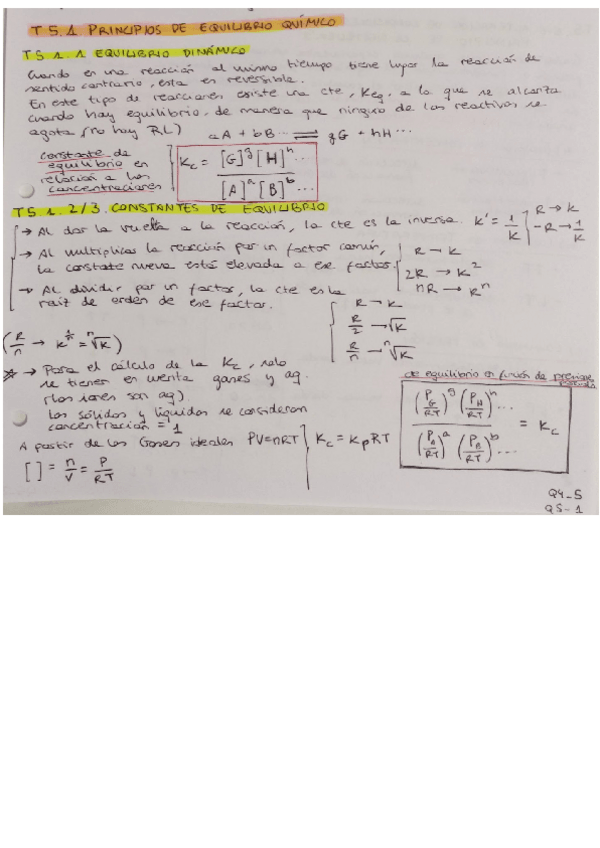 T5.1 PRINCIPIOS DE EQUILIBRIO QUÍMICO
T5 1. 1 EQUILIBRIO DINÁMICO
Cuando en una reacción al mismo tiempo tiene lugar la reacción de
sentido contrario, esta es reversible.
En este tipo de reacciones existe una cte, Keq. a la que se alcanza
cuando hay equilibrio, de manera que ninguno de los reactivos se
agota (no hay RL)
aA + bB... ⇌ gG + hH...
constante de
equilibrio en
relación a las
concentraciones
Kc = [G]^g [H]^h... / [A]^a [B]^b...
T5.1. 2/3. CONSTANTES DE EQUILIBRIO
→ Al dar la vuelta a la reacción, la cte es la inversa. K' = 1/K
R → K
-R → 1/K
→ Al multiplicar la reacción por un factor común,
la constate nueva está elevada a ese factor.
R → K
2R → K^2
nR → K^n
→ Al dividir por un factor, la cte es la
raíz de orden de ese factor.
R → K
R/2 → √K
R/n → ^n√K
(R/n → K^(1/n) = ^n√K)
→ Para el cálculo de la Kc, solo
se tienen en cuenta gases y aq.
(los iones son aq)
los sólidos y líquidos se consideran
concentración = 1
cte equilibrio en función de presiones
parciales
(P_G/RT)^g (P_H/RT)^h... / (P_A/RT)^a (P_B/RT)^b... = Kc
A partir de los Gases ideales PV=nRT
[ ] = n/V = P/RT
Kc = Kp RT
Q4-5
Q5-1